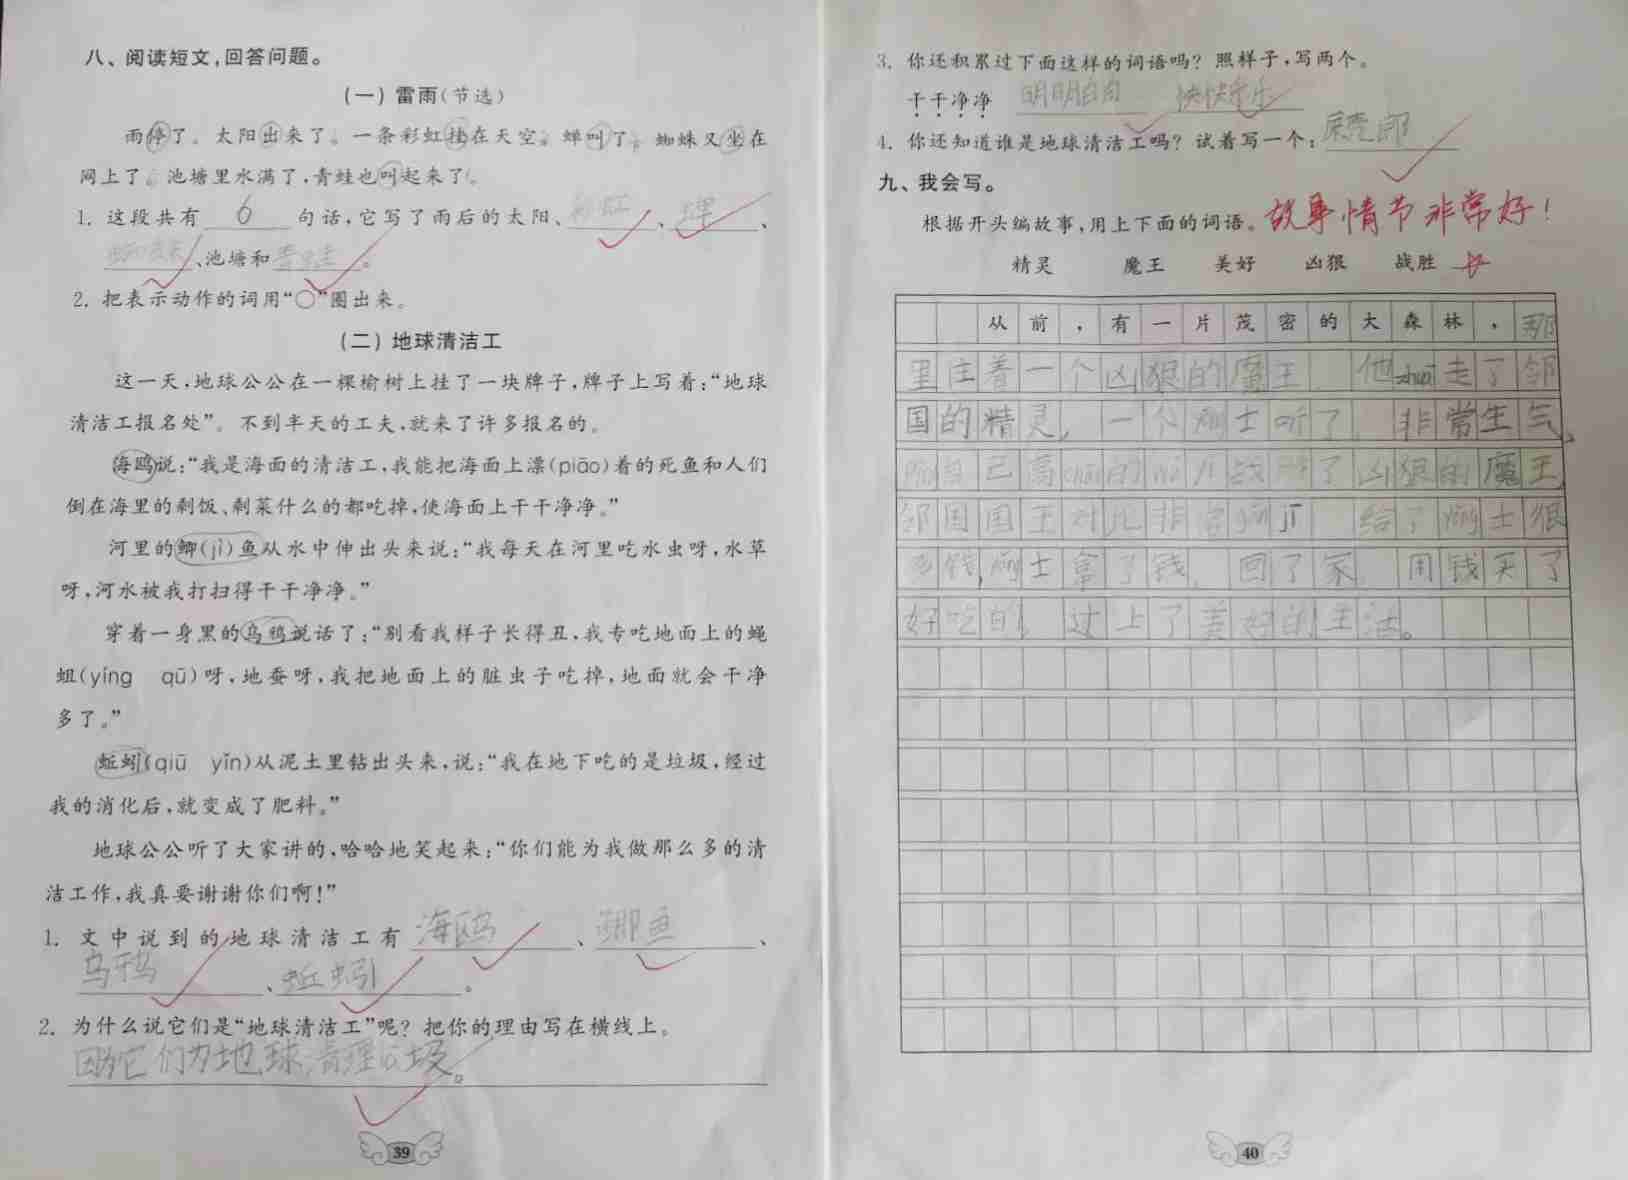 八、阅读短文,回答问题。
(一)雷雨(节选)
雨停了。太阳出来了。一条彩虹挂在天空。蝉叫了。蜘蛛又坐在
网上了。池塘里水满了,青蛙也叫起来了。
1. 这段共有 6 句话,它写了雨后的太阳、彩虹、蝉、
蜘蛛、池塘和青蛙。
2. 把表示动作的词用“○”圈出来。
(二)地球清洁工
这一天,地球公公在一棵榆树上挂了一块牌子,牌子上写着:“地球
清洁工报名处”。不到半天的工夫,就来了许多报名的。
海鸥说:“我是海面的清洁工,我能把海面上漂(piāo)着的死鱼和人们
倒在海里的剩饭、剩菜什么的都吃掉,使海面上干干净净。”
河里的鲫(jì)鱼从水中伸出头来说:“我每天在河里吃水虫呀,水草
呀,河水被我打扫得干干净净。”
穿着一身黑的乌鸦说话了:“别看我样子长得丑,我专吃地面上的蝇
蛆(yíng qū)呀,地蚕呀,我把地面上的脏虫子吃掉,地面就会干净
多了。”
蚯蚓(qiū yǐn)从泥土里钻出头来,说:“我在地下吃的是垃圾,经过
我的消化后,就变成了肥料。”
地球公公听了大家讲的,哈哈地笑起来:“你们能为我做那么多的清
洁工作,我真要谢谢你们啊!”
1. 文中说到的地球清洁工有 海鸥、鲫鱼、
乌鸦、蚯蚓。
2. 为什么说它们是“地球清洁工”呢?把你的理由写在横线上。
因为它们为地球清理垃圾。
39
3. 你还积累过下面这样的词语吗?照样子,写两个。
干干净净 明明白白 快快乐乐
4. 你还知道谁是地球清洁工吗?试着写一个:屎壳郎
九、我会写。
根据开头编故事,用上下面的词语。故事情节非常好!
精灵 魔王 美好 凶狠 战胜
从前,有一片茂密的大森林,那
里住着一个凶狠的魔王 他zhuā走了邻
国的精灵,一个 士听了 非常生气,
自己高 的 战胜了凶狠的魔王
邻国国王对 非常 给了 士很
多钱, 士拿了钱 回了家 用钱买了
好吃的,过上了美好的生活。
40